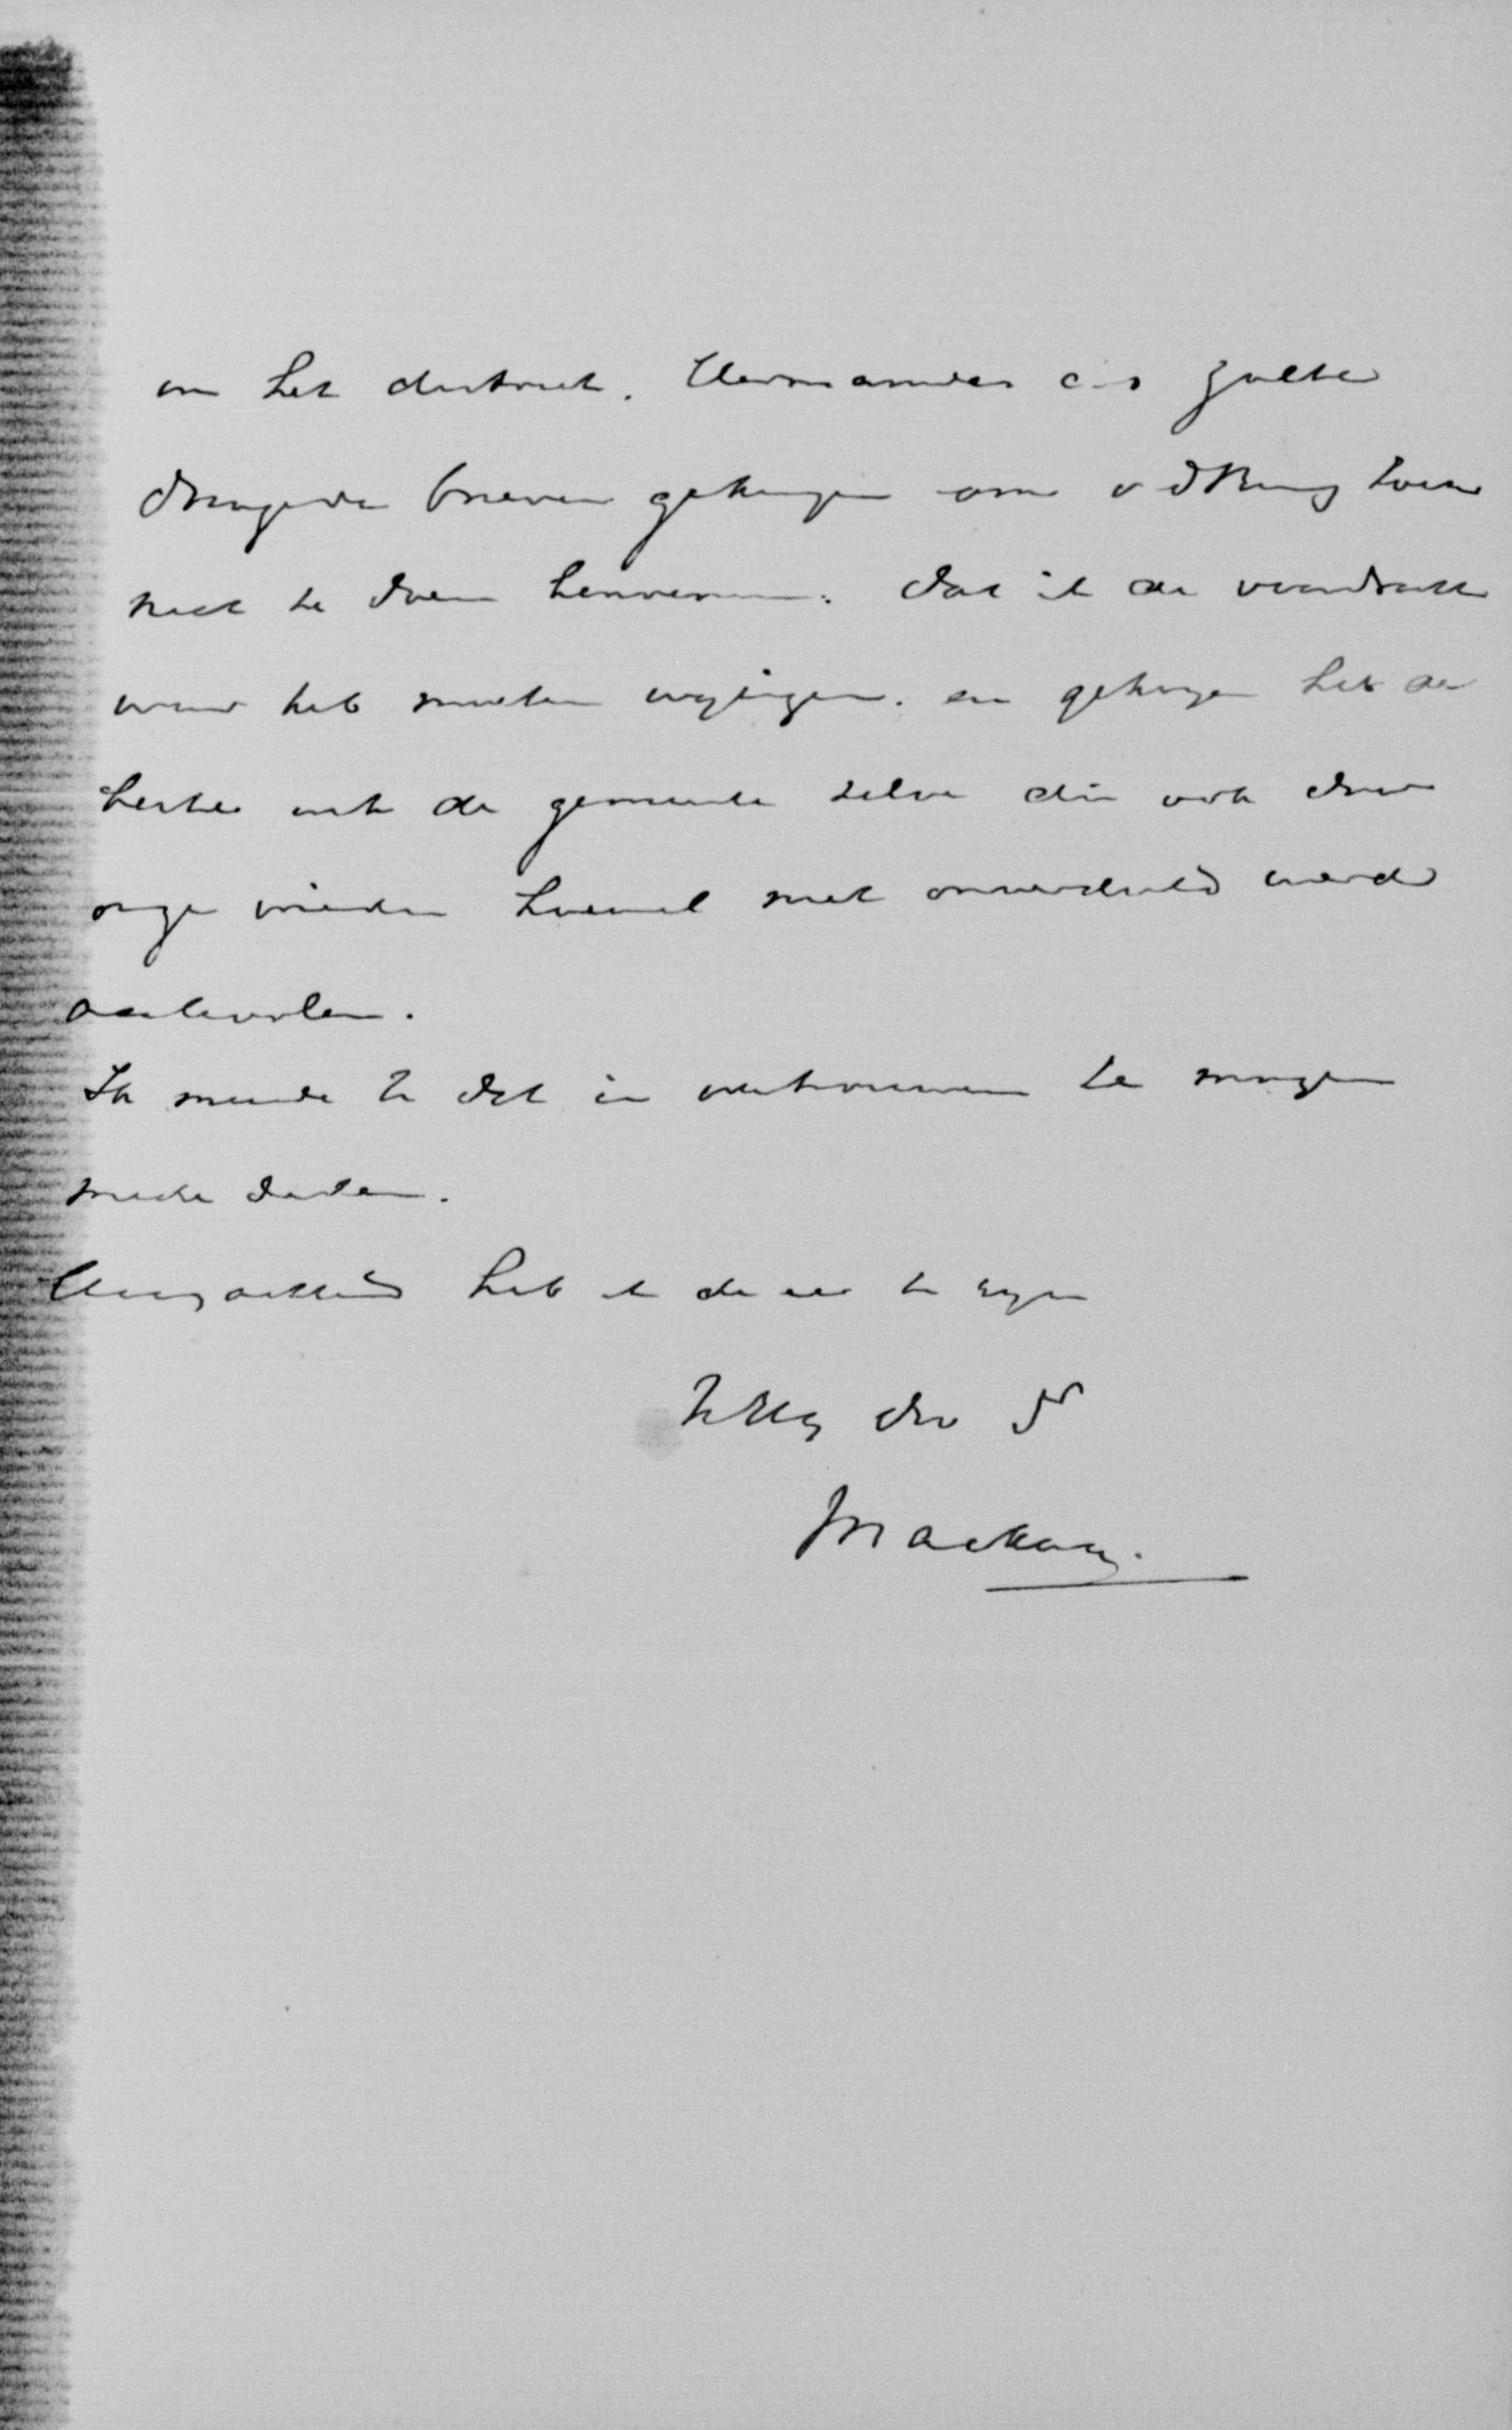 in het district. Hermanides c.s. zulke
dringende brieven gekregen om v d Berg toch
niet te doen benoemen. dat ik de voordracht
weer heb moeten wijzigen. en gekozen heb de
beste uit de gemeente zelve die ook door
onze vrienden hoewel niet onverdeeld werd
aanbevolen.
Ik meende U dit in vertrouwen te mogen
mede deelen.
Hoogachtend heb ik de eer te zijn
UHEG dw Dr
Mackay.